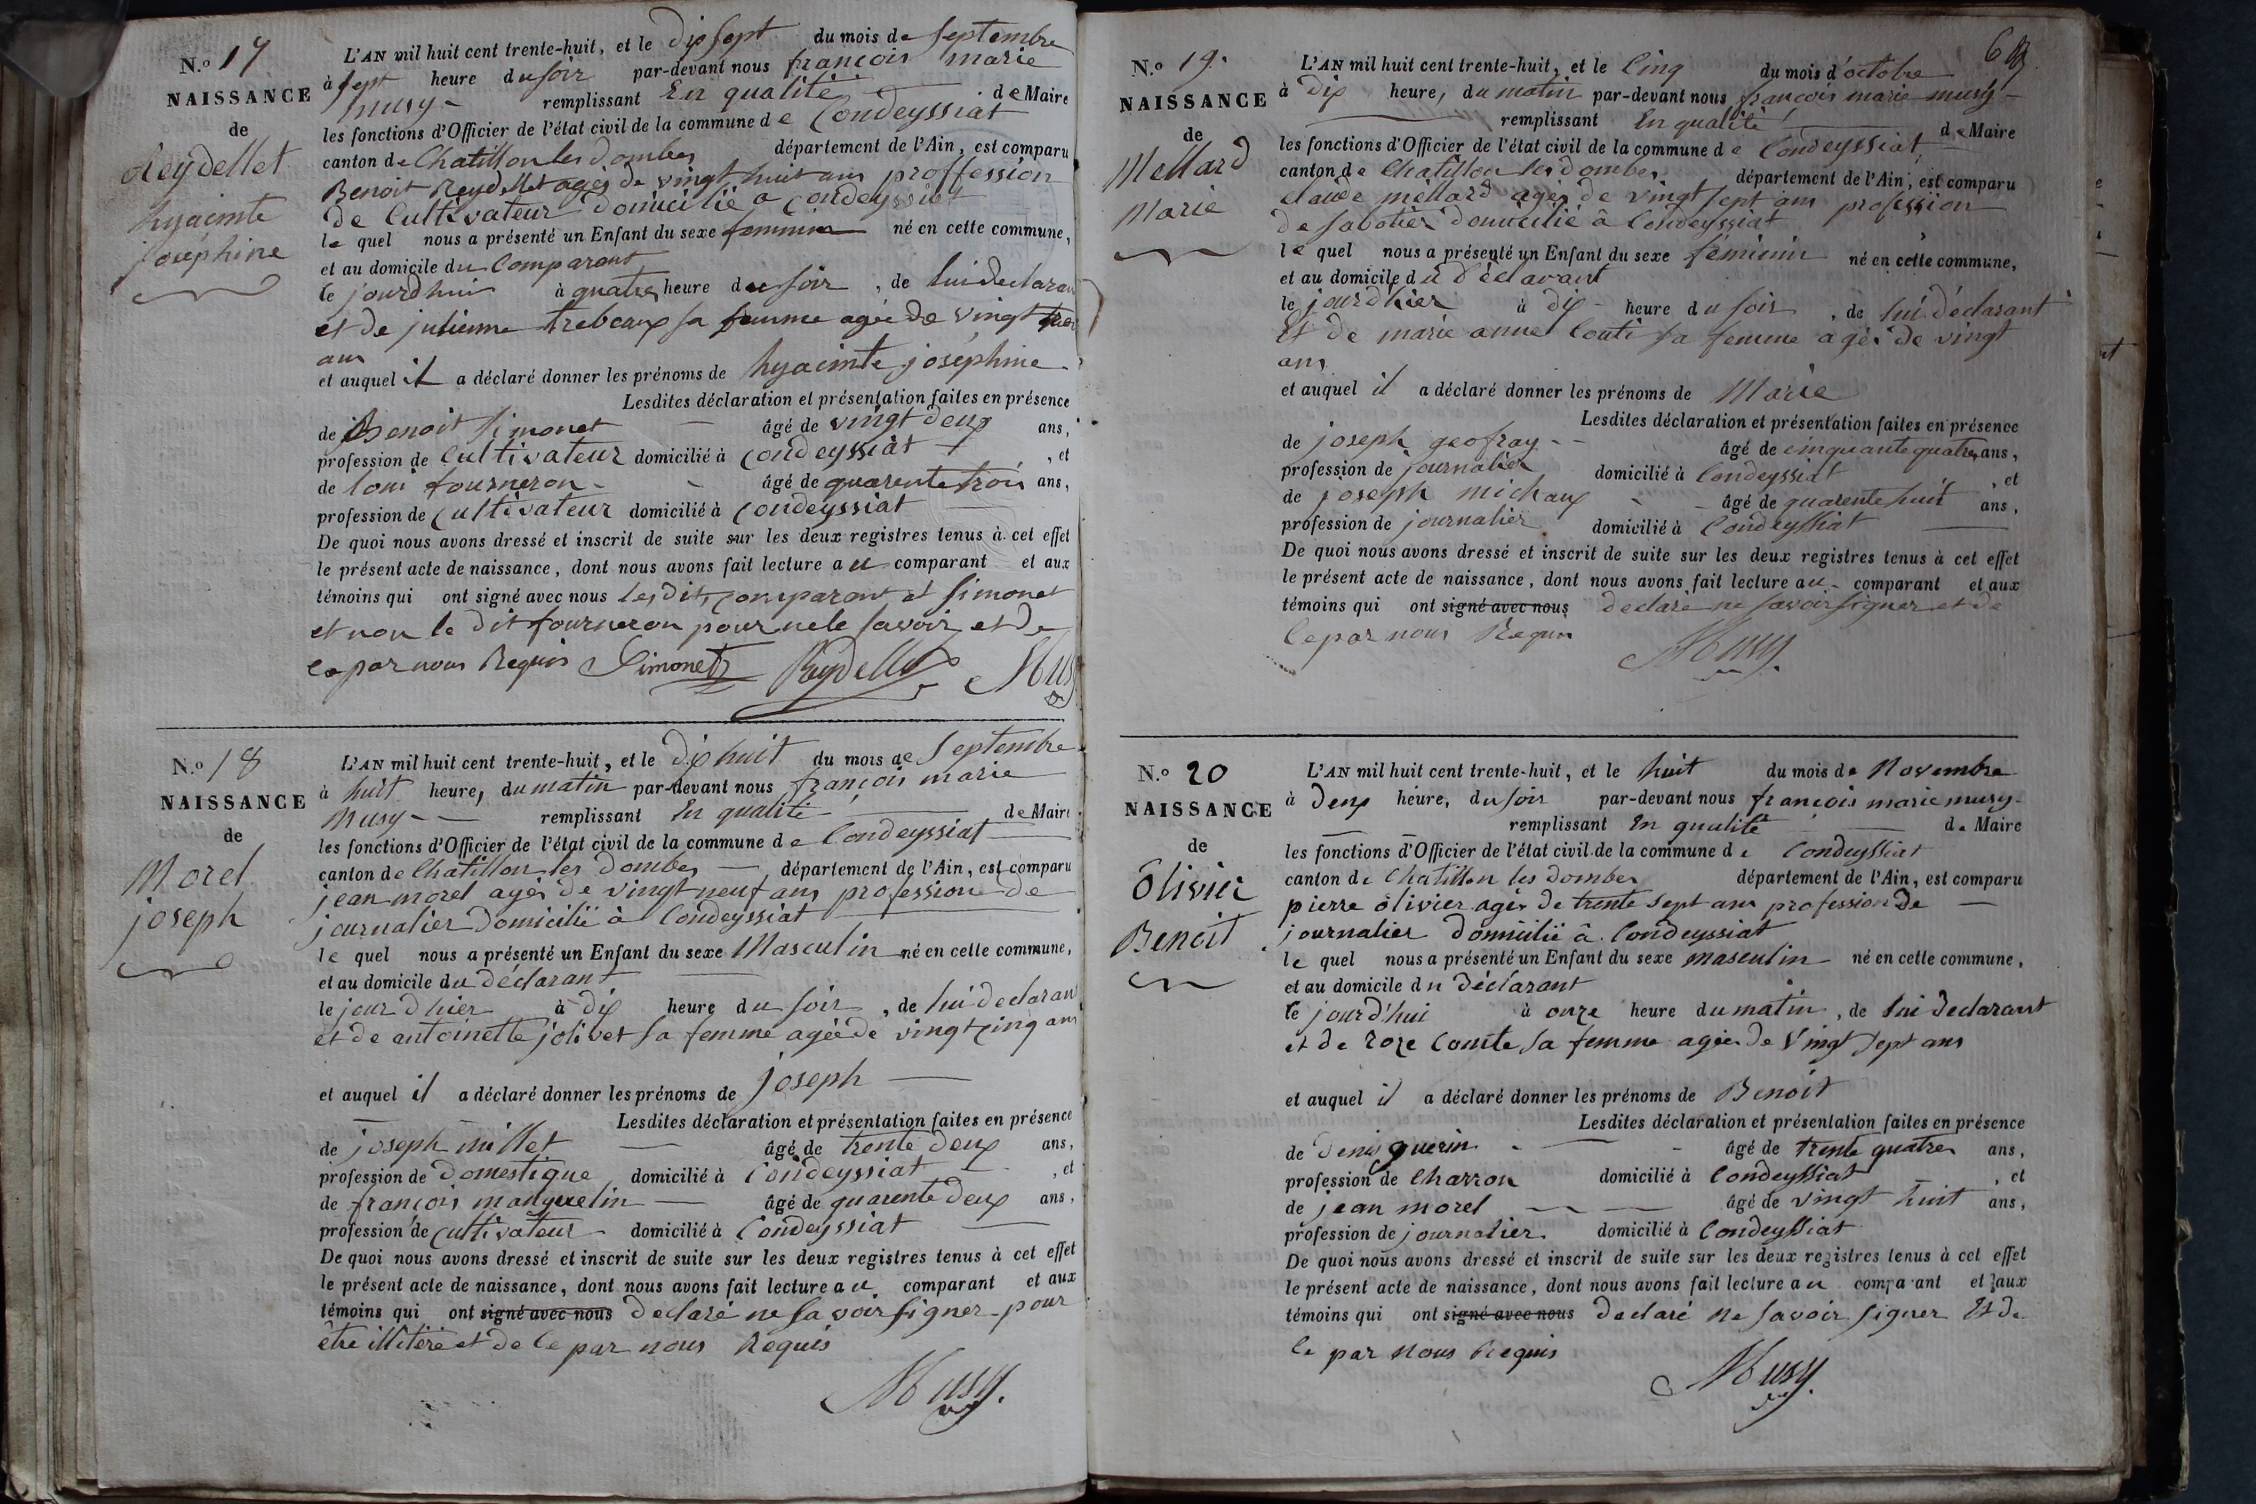 N.o 17
NAISSANCE
de
Reydellet
hyacinte
joséphine
L'AN mil huit cent trente-huit, et le dix sept du mois de Septembre
à sept heure du soir par-devant nous françois marie
musy - remplissant En qualité de Maire
les fonctions d'Officier de l'état civil de la commune de Condeyssiat
canton de Chatillon les dombes département de l'Ain, est comparu
Benoit Reydellet agés de vingt huit ans proffession
de Cultivateur domicilié a Condeyssiat
le quel nous a présenté un Enfant du sexe feminin né en cette commune,
et au domicile du Comparant
le jourdhui à quatre heure du soir, de lui declaran
et de julienne trebeaux sa femme agée de vingt
ans
et auquel il a déclaré donner les prénoms de hyacinte joséphine
Lesdites déclaration et présentation faites en présence
de Benoit Simonet âgé de vingt deux ans,
profession de Cultivateur domicilié à Condeyssiat, et
de loui fourneron - âgé de quarente trois ans,
profession de Cultivateur domicilié à Condeyssiat
De quoi nous avons dressé et inscrit de suite sur les deux registres tenus à cet effet
le présent acte de naissance, dont nous avons fait lecture au comparant et aux
témoins qui ont signé avec nous les dits comparant et Simonet
et non le dit fourneron pour ne le savoir et de
ce par nous Requis Simonet Reydellet Mus
N.o 18
NAISSANCE
de
Morel
joseph
L'AN mil huit cent trente-huit, et le dix huit du mois de Septembre
à huit heure, du matin par-devant nous françois marie
Musy - - remplissant En qualité de Maire
les fonctions d'Officier de l'état civil de la commune de Condeyssiat
canton de Chatillon les Dombes département de l'Ain, est comparu
jean morel agés de vingt neuf ans profession de
journalier Domicilié à Condeyssiat
le quel nous a présenté un Enfant du sexe Masculin né en cette commune,
et au domicile du déclarant
le jour d'hier à dix heure du soir, de lui declaran
et de antoinette jolivet sa femme agée de vingt cinq ans
et auquel il a déclaré donner les prénoms de Joseph
Lesdites déclaration et présentation faites en présence
de joseph millet âgé de trente deux ans,
profession de domestique domicilié à Condeyssiat, et
de françois manguelin âgé de quarente deux ans,
profession de Cultivateur domicilié à Condeyssiat
De quoi nous avons dressé et inscrit de suite sur les deux registres tenus à cet effet
le présent acte de naissance, dont nous avons fait lecture au comparant et aux
témoins qui ont signé avec nous declaré ne savoir signer pour
être illitéré et de ce par nous Requis
Musy.
N.o 19.
NAISSANCE
de
Mellard
Marie
L'AN mil huit cent trente-huit, et le Cinq du mois d'octobre
à Dix heure, du matin par-devant nous françois marie musy -
remplissant En qualité de Maire
les fonctions d'Officier de l'état civil de la commune de Condeyssiat
canton de Chatillon les dombes département de l'Ain, est comparu
claude mellard agés de vingt sept ans profession
de sabotier domicilié à Condeyssiat
le quel nous a présenté un Enfant du sexe féminin né en cette commune,
et au domicile du déclarant
le jour d'hier à dix heure du soir, de lui déclarant
Et de marie anne Conti sa femme agés de vingt
ans
et auquel il a déclaré donner les prénoms de Marie
Lesdites déclaration et présentation faites en présence
de joseph geofray - - âgé de cinquante quatre ans,
profession de journalier domicilié à Condeyssiat, et
de joseph michaux - âgé de quarente huit ans,
profession de journalier domicilié à Condeyssiat
De quoi nous avons dressé et inscrit de suite sur les deux registres tenus à cet effet
le présent acte de naissance, dont nous avons fait lecture au - comparant et aux
témoins qui ont signé avec nous declaré ne savoir signer et de
Ce par nous Requis
Musy.
N.o 20
NAISSANCE
de
Olivier
Benoit
L'AN mil huit cent trente-huit, et le huit du mois de Novembre
à Deux heure, du soir par-devant nous françois marie musy -
remplissant En qualité de Maire
les fonctions d'Officier de l'état civil de la commune de Condeyssiat
canton de Chatillon les Dombes département de l'Ain, est comparu
pierre olivier agés de trente sept ans profession de
journalier domicilié à Condeyssiat
le quel nous a présenté un Enfant du sexe masculin né en cette commune,
et au domicile du Déclarant
le jourd'hui à onze heure du matin, de lui Declarant
et de roze Comte sa femme agée de vingt sept ans
et auquel il a déclaré donner les prénoms de Benoit
Lesdites déclaration et présentation faites en présence
de Denis guerin - âgé de trente quatre ans,
profession de Charron domicilié à Condeyssiat, et
de jean morel âgé de vingt huit ans,
profession de journalier domicilié à Condeyssiat
De quoi nous avons dressé et inscrit de suite sur les deux registres tenus à cet effet
le présent acte de naissance, dont nous avons fait lecture au comparant et aux
témoins qui ont signé avec nous declaré ne savoir signer Et de
Ce par nous Requis
Musy.